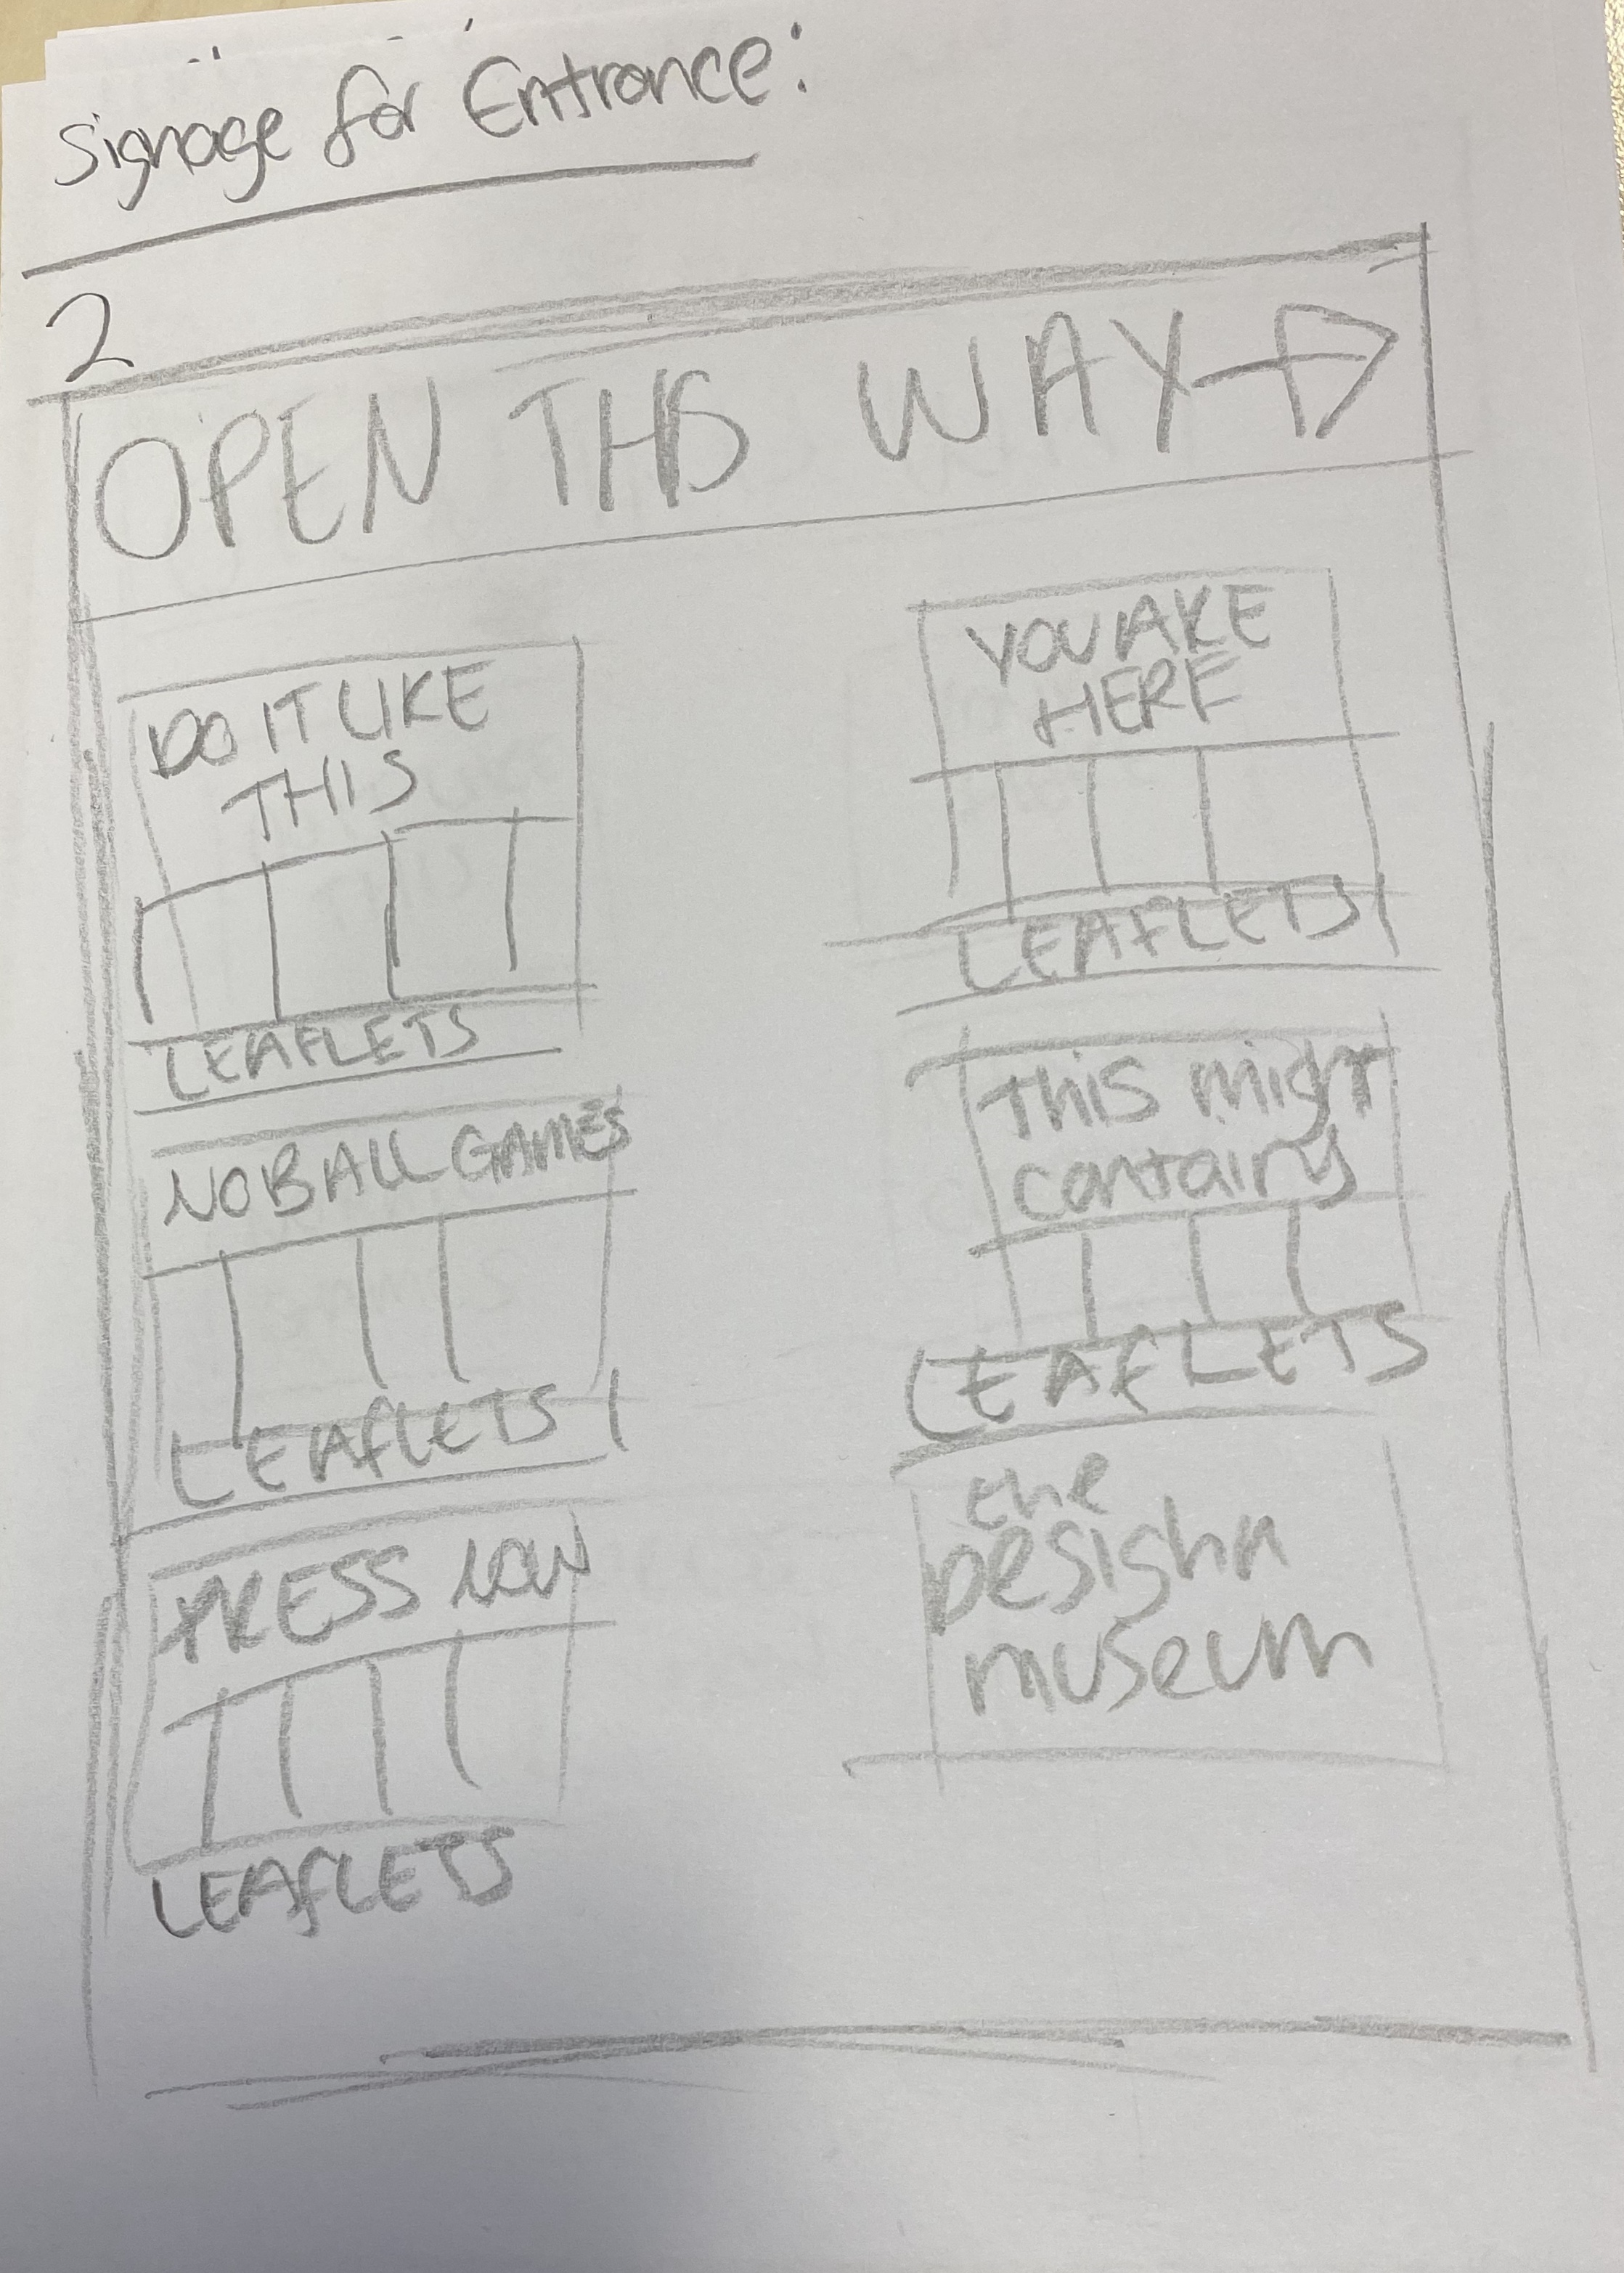 Signage for Entrance:
2
OPEN THIS WAY
DO IT LIKE
THIS
LEAFLETS
NO BALL GAMES
LEAFLETS
PRESS NOW
LEAFLETS
YOU ARE
HERE
LEAFLETS
This might
contain
LEAFLETS
the
Design
museum